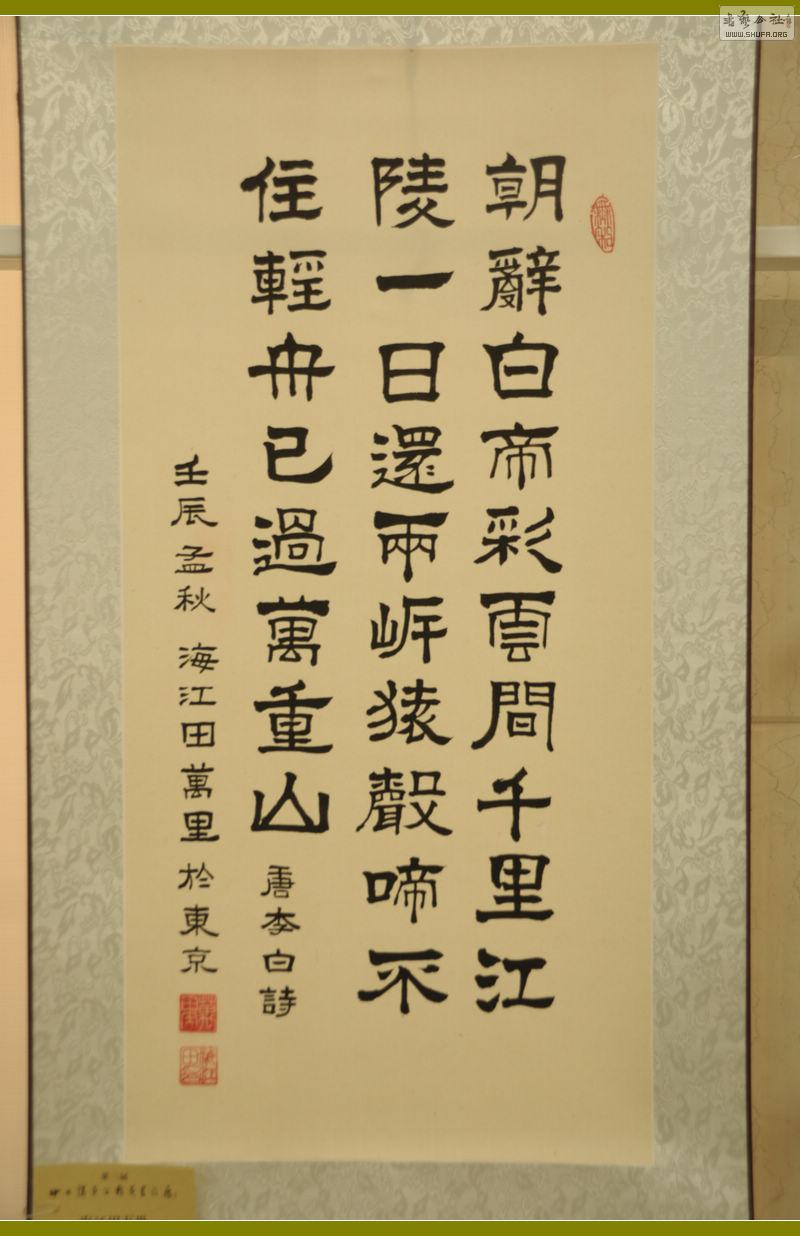 朝辭白帝彩雲間千里江
陵一日還兩岸猿聲啼不
住輕舟已過萬重山
唐李白詩
壬辰孟秋 海江田萬里 於東京
WWW.SHUFA.ORG